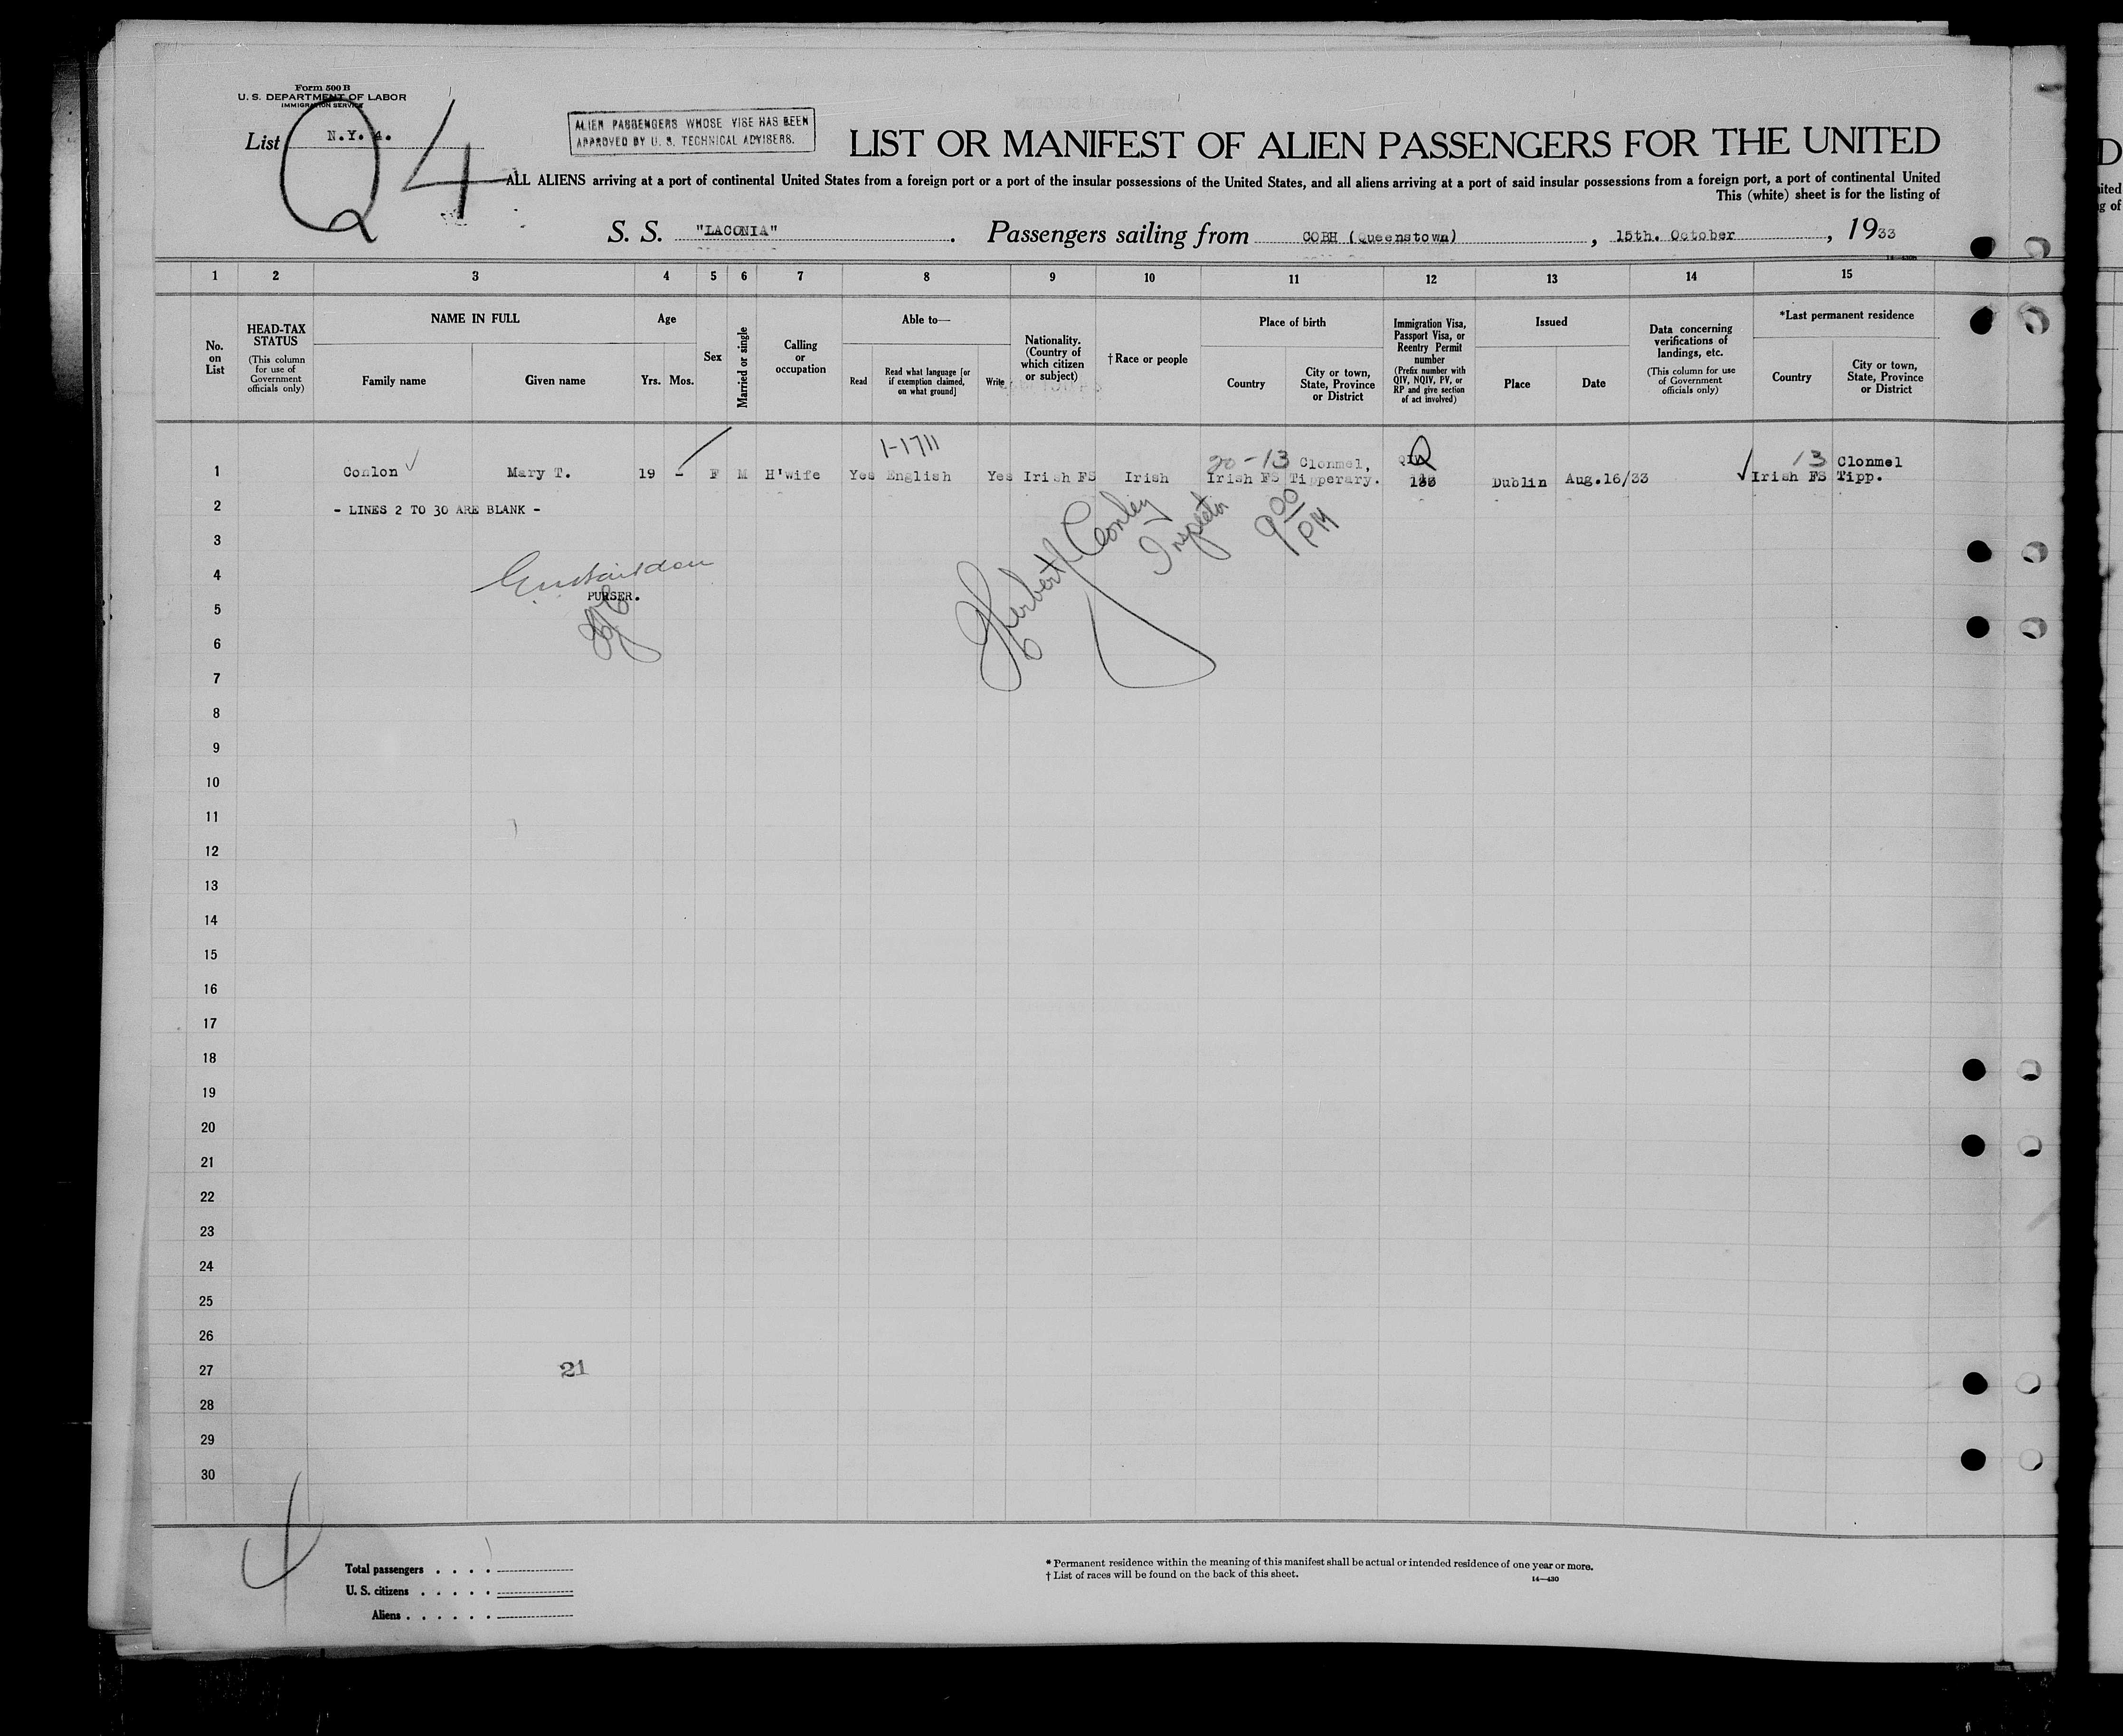 Form 500 B
U. S. DEPARTMENT OF LABOR
IMMIGRATION SERVICE
List N.Y. 4.
Q 4
ALIEN PASSENGERS WHOSE VISE HAS BEEN
APPROVED BY U. S. TECHNICAL ADVISERS.
LIST OR MANIFEST OF ALIEN PASSENGERS FOR THE UNITED
ALL ALIENS arriving at a port of continental United States from a foreign port or a port of the insular possessions of the United States, and all aliens arriving at a port of said insular possessions from a foreign port, a port of continental United
This (white) sheet is for the listing of
S. S. "LACONIA". Passengers sailing from COBH (Queenstown), 15th. October, 1933
1 2 3 4 5 6 7 8 9 10 11 12 13 14 15
No. on List
HEAD-TAX STATUS
(This column for use of Government officials only)
NAME IN FULL
Family name
Given name
Age
Yrs. Mos.
Sex
Married or single
Calling or occupation
Able to—
Read
Read what language [or if exemption claimed, on what ground]
Write
Nationality. (Country of which citizen or subject)
†Race or people
Place of birth
Country
City or town, State, Province or District
Immigration Visa, Passport Visa, or Reentry Permit number
(Prefix number with QIV, NQIV, PV, or RP and give section of act involved)
Issued
Place
Date
Data concerning verifications of landings, etc.
(This column for use of Government officials only)
*Last permanent residence
Country
City or town, State, Province or District
1-1711
20-13 Clonmel, QIV Q 13 Clonmel
1 Conlon Mary T. 19 - F M H'wife Yes English Yes Irish FS Irish Irish FS Tipperary. Dublin Aug.16/33 Irish FS Tipp.
2 - LINES 2 TO 30 ARE BLANK -
3
4
PURSER.
Herbert Conley
Inspector
9 00 PM
5
6
7
8
9
10
11
12
13
14
15
16
17
18
19
20
21
22
23
24
25
26
27 21
28
29
30
4
Total passengers . . . .
U. S. citizens . . . . .
Aliens . . . . . .
* Permanent residence within the meaning of this manifest shall be actual or intended residence of one year or more.
† List of races will be found on the back of this sheet.
14—430